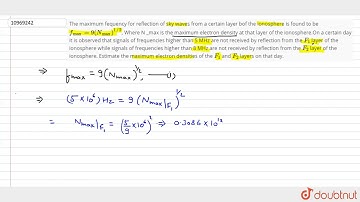 10969242
The maximum fequency for reflection of sky waves from a certain layer bof the ionosphere is found to be
f_max = 9(N_max)^1/2, Where N _max is the maximum electron density at that layer of the ionosphere.On a certain day
it is observed that signals of frequencies higher than 5 MHz are not received by reflection from the F₁ layer of the
ionosphere while signals of frequencies higher than 8 MHz are not received by reflection from the F₂ layer of the
ionosphere. Estimate the maximum electron densities of the F₁ and F₂ layers on that day.
⇒ f_max = 9 (N_max)^1/2 —(1)
⇒ (5 × 10⁶) Hz = 9 (N_max|F₁)^1/2
= N_max|F₁ = (5/9 × 10⁶)² ⇒ 0.3086 × 10¹²
doubtnut